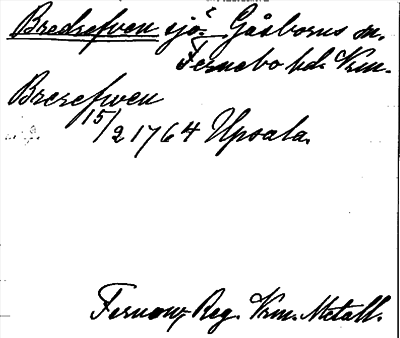 Bredrefven sjö - Gåsborns sn.
Fernebo hd. Vrm.
Brerefwen
15/2 1764 Upsala.
Fernow, Reg. Vrm. Metall.